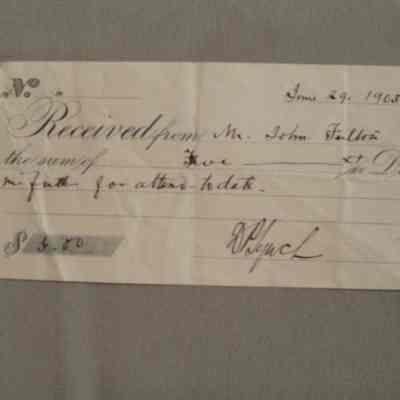 No.
June 29. 1905
Received from Mr. John Fulton
the sum of Five
in full for attend. to date.
$ 5.00